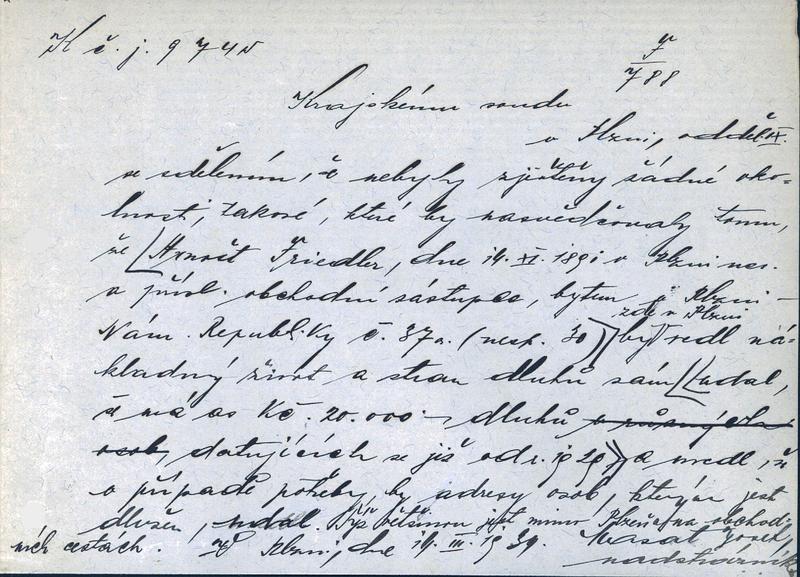 K č. j. 9740
F
788
Krajskému soudu
v Plzni, odděl. IX.
se sdělením, že nebyly zjištěny žádné oko-
lnosti, takové, které by nasvědčovaly tomu,
že Arnošt Friedler, dne 14. XI. 1891 v Plzni nar.
a přísl. obchodní zástupce, bytem v Plzni -
zde v Plzni
Nám. Republiky č. 37a. (nesp. 30) by vedl ná-
kladný život a stran dluhů sám udal,
že má as Kč. 20.000.- dluhů a různých
osob, datujících se již od r. 1929 a uvedl, že
v případě potřeby, by adresy osob, kterým jest
dlužen, udal. Týž většinou jest mimo Plzeň na obchod-
ních cestách. V Plzni, dne 14. III. 1934. Josef,
nadstrážník